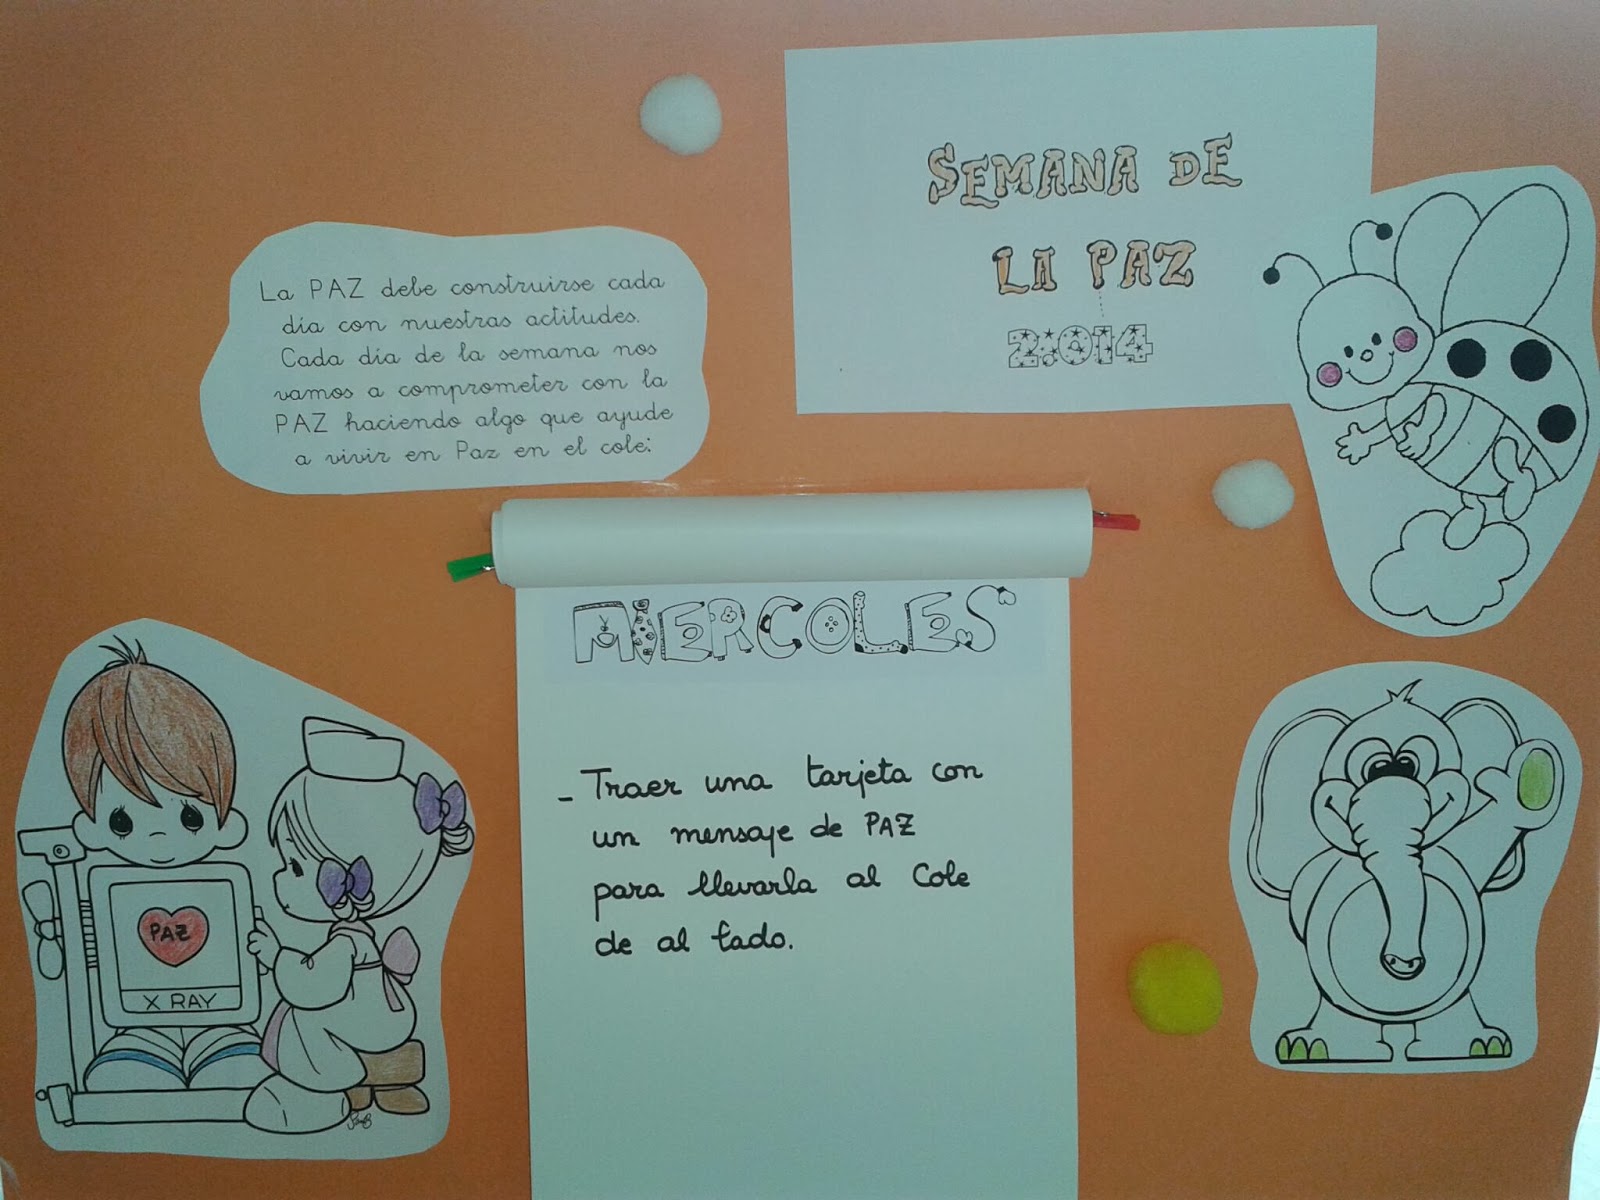 SEMANA DE
LA PAZ
2.014
La PAZ debe construirse cada
día con nuestras actitudes.
Cada día de la semana nos
vamos a comprometer con la
PAZ haciendo algo que ayude
a vivir en Paz en el cole:
MIERCOLES
- Traer una tarjeta con
un mensaje de PAZ
para llevarla al Cole
de al lado.
PAZ
X RAY